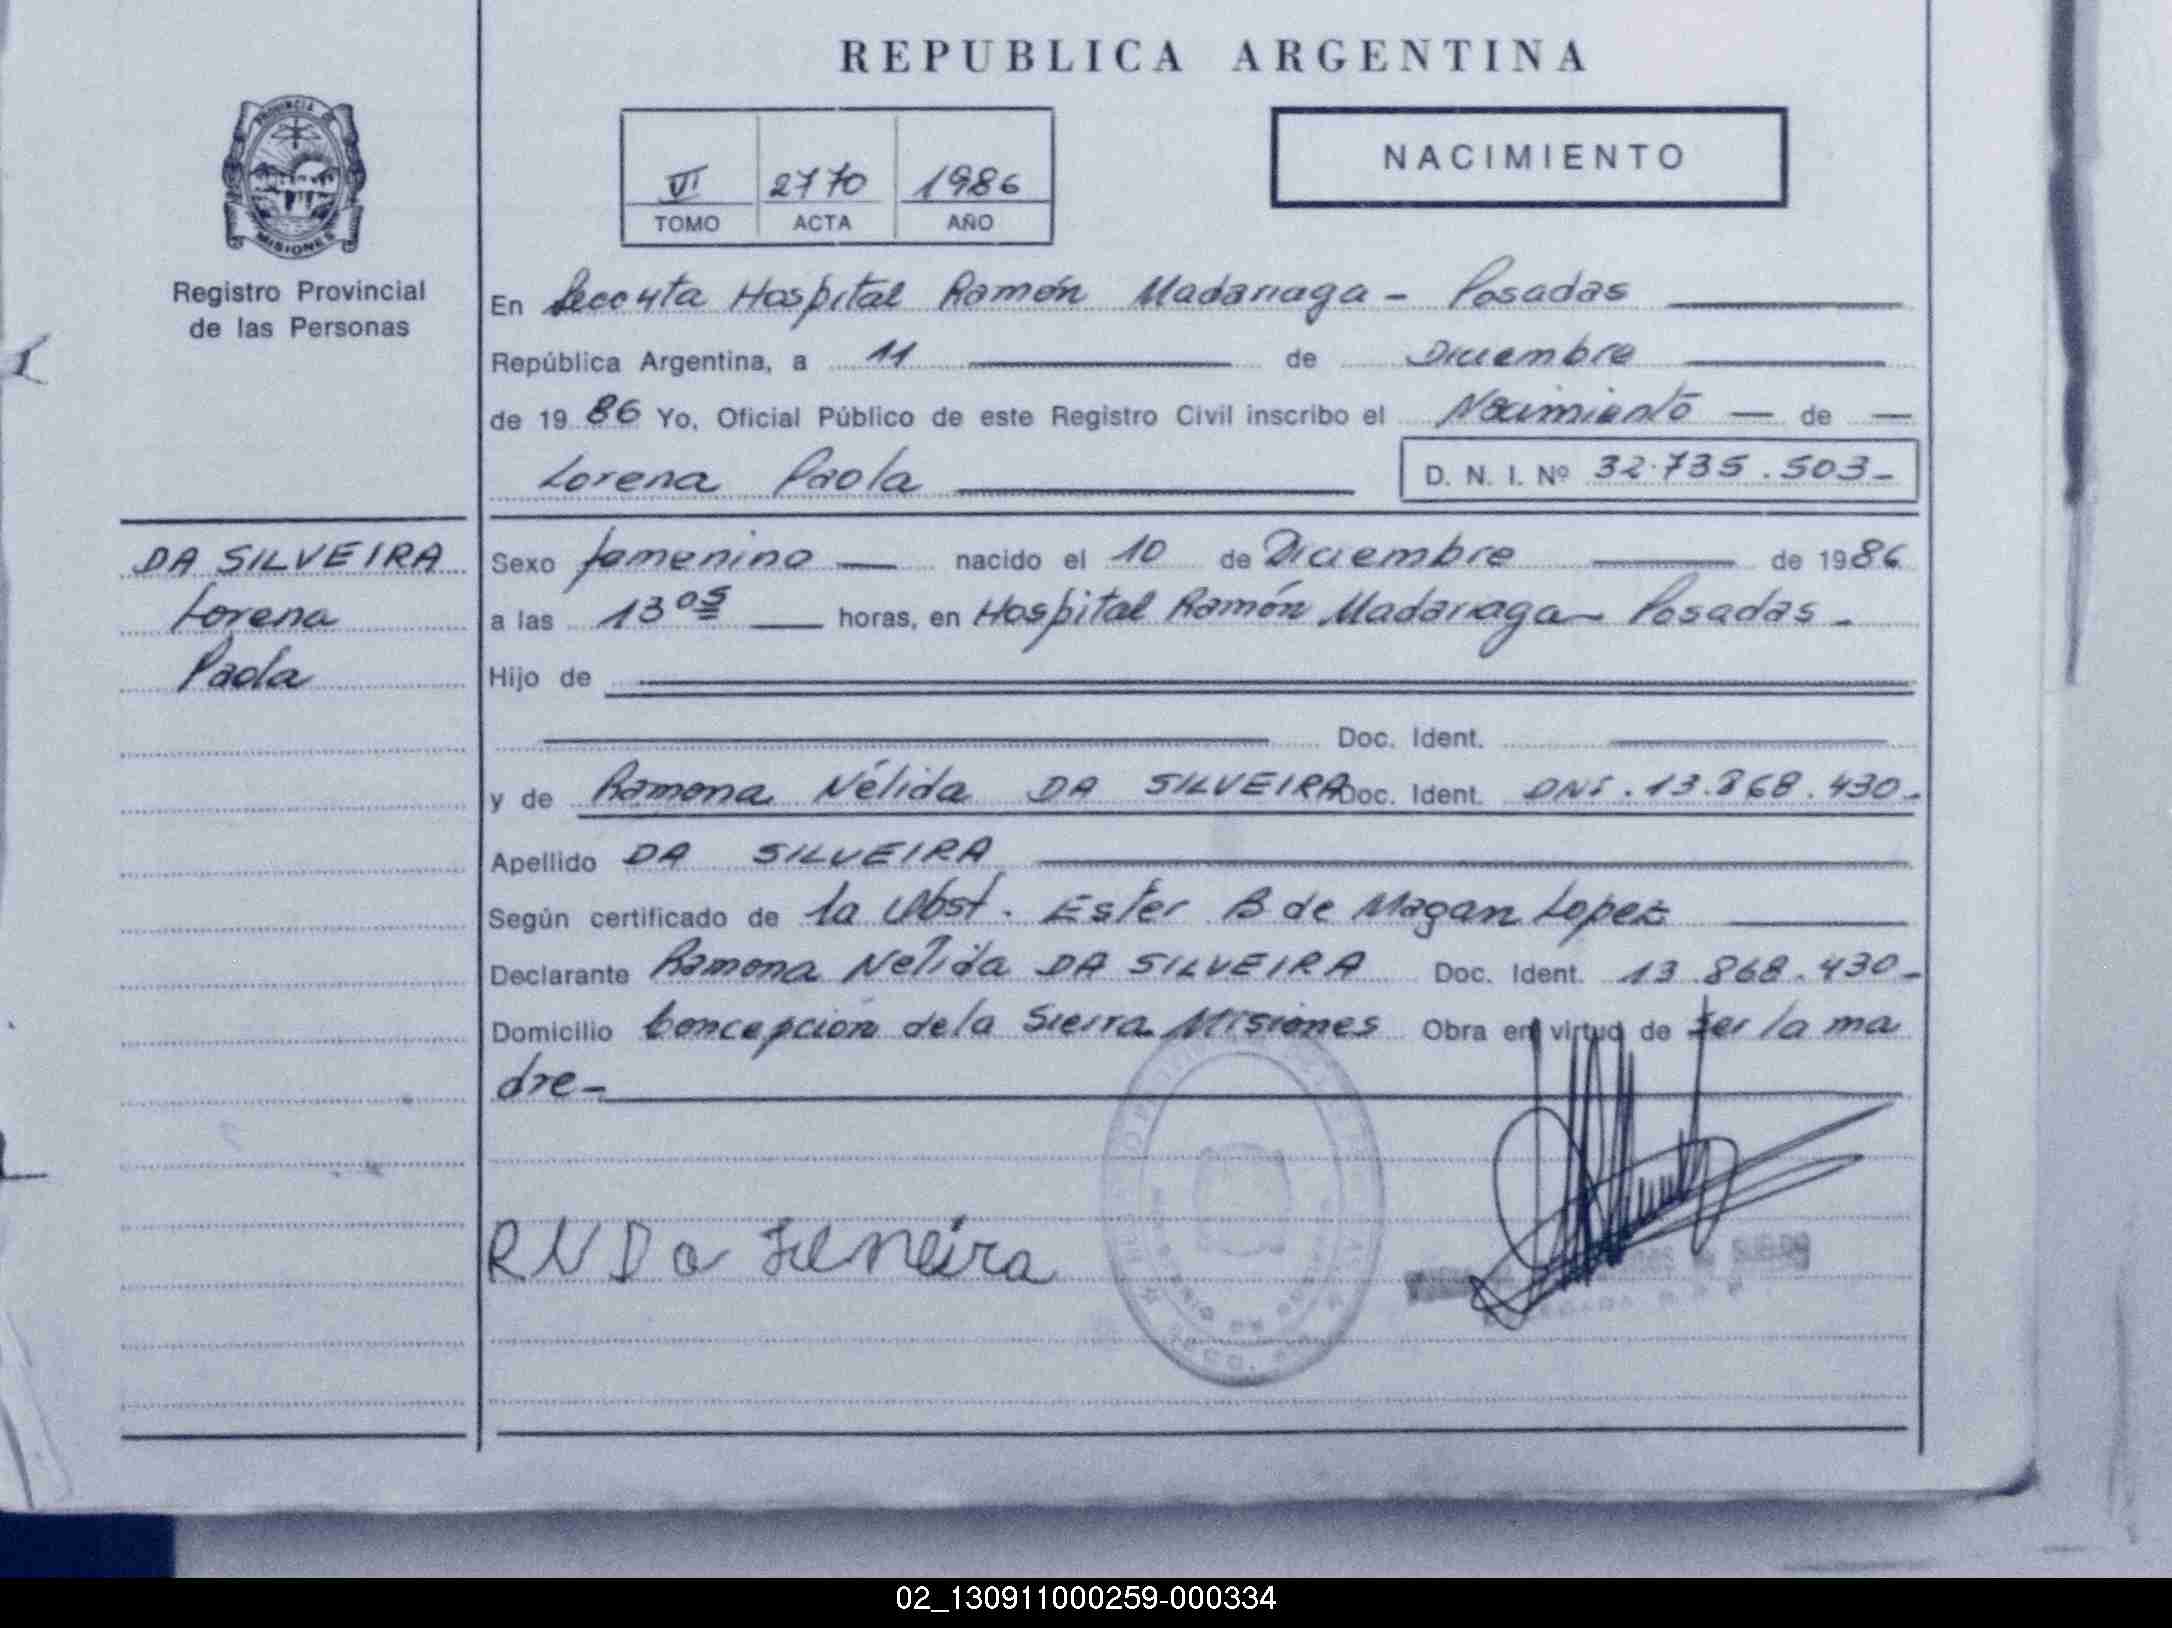 REPUBLICA ARGENTINA
PROVINCIA DE
MISIONES
Registro Provincial
de las Personas
VI 2770 1986
TOMO ACTA AÑO
NACIMIENTO
En Hospital Ramón Madariaga - Posadas
República Argentina, a 11 de Diciembre
de 19 86 Yo, Oficial Público de este Registro Civil inscribo el Nacimiento de
Lorena Paola D. N. I. Nº 32.735.503-
DA SILVEIRA
Lorena
Paola
Sexo femenino nacido el 10 de Diciembre de 1986
a las 13 05 horas, en Hospital Ramón Madariaga - Posadas -
Hijo de
Doc. Ident.
y de Ramona Nélida DA SILVEIRA Doc. Ident. DNI. 13.868.430-
Apellido DA SILVEIRA
Según certificado de la Obst. Ester B de Magan Lopez
Declarante Ramona Nelida DA SILVEIRA Doc. Ident. 13.868.430-
Domicilio Concepción de la Sierra Misiones Obra en virtud de ser la ma
dre-
R N Da Silveira
02_130911000259-000334